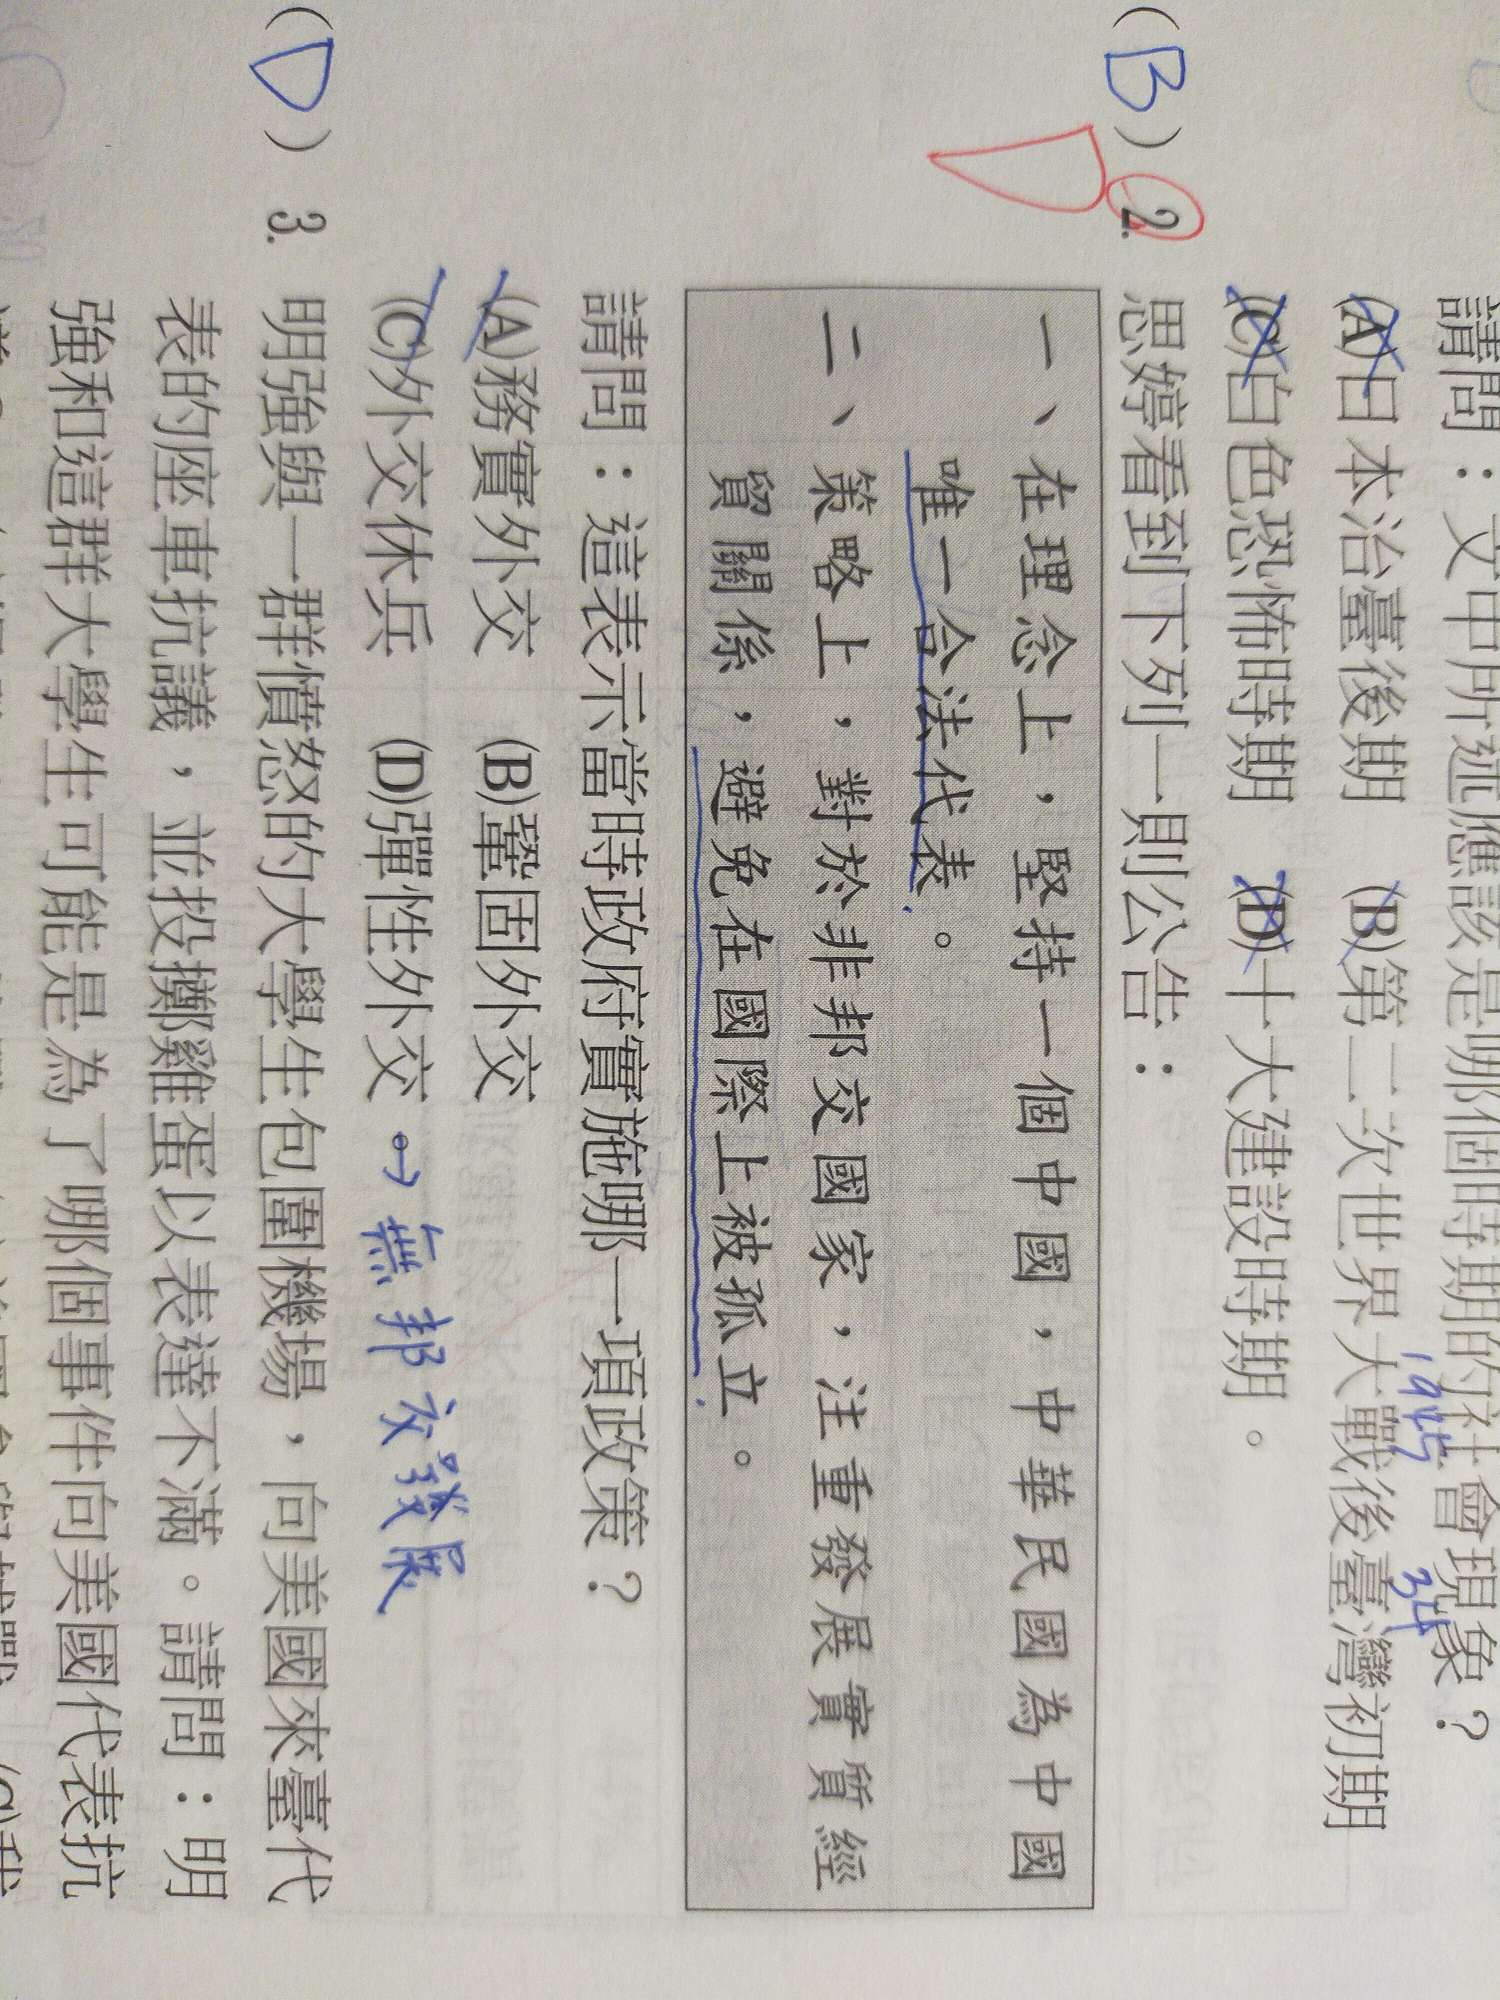 請問：文中所述應該是哪個時期的社會現象？
(A)日本治臺後期　(B)第二次世界大戰後臺灣初期
(C)白色恐怖時期　(D)十大建設時期。
(B) 2. 思婷看到下列一則公告：
D
一、在理念上，堅持一個中國，中華民國為中國
唯一合法代表。
二、策略上，對於非邦交國家，注重發展實質經
貿關係，避免在國際上被孤立。
請問：這表示當時政府實施哪一項政策？
(A)務實外交　(B)鞏固外交
(C)外交休兵　(D)彈性外交。→無邦交發展
(D) 3. 明強與一群憤怒的大學生包圍機場，向美國來臺代
表的座車抗議，並投擲雞蛋以表達不滿。請問：明
強和這群大學生可能是為了哪個事件向美國代表抗